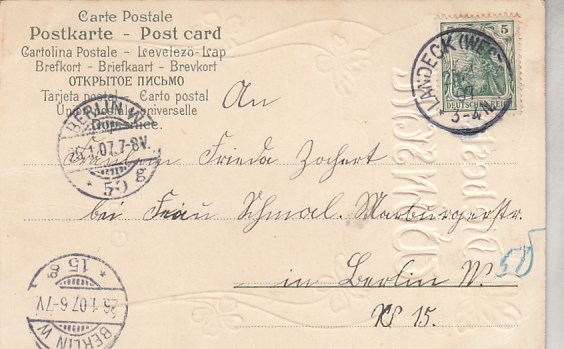 Carte Postale
Postkarte - Post card
Cartolina Postale - Levelező-Lap
Brefkort - Briefkaart - Brevkort
ОТКРЫТОЕ ПИСЬМО
Tarjeta postal - Carto postal
Union postale universelle
LANDECK (WES
07
3-4N.
5 5
DEUTSCHES REICH
An
BERLIN W.
26.1.07.7-8V.
* 50 g
Fräulein Frieda Zochert
bei Frau Schmal. Marburgerstr.
in Berlin W. 50
* 15 g
26.1.07.6-7V.
BERLIN W
15.